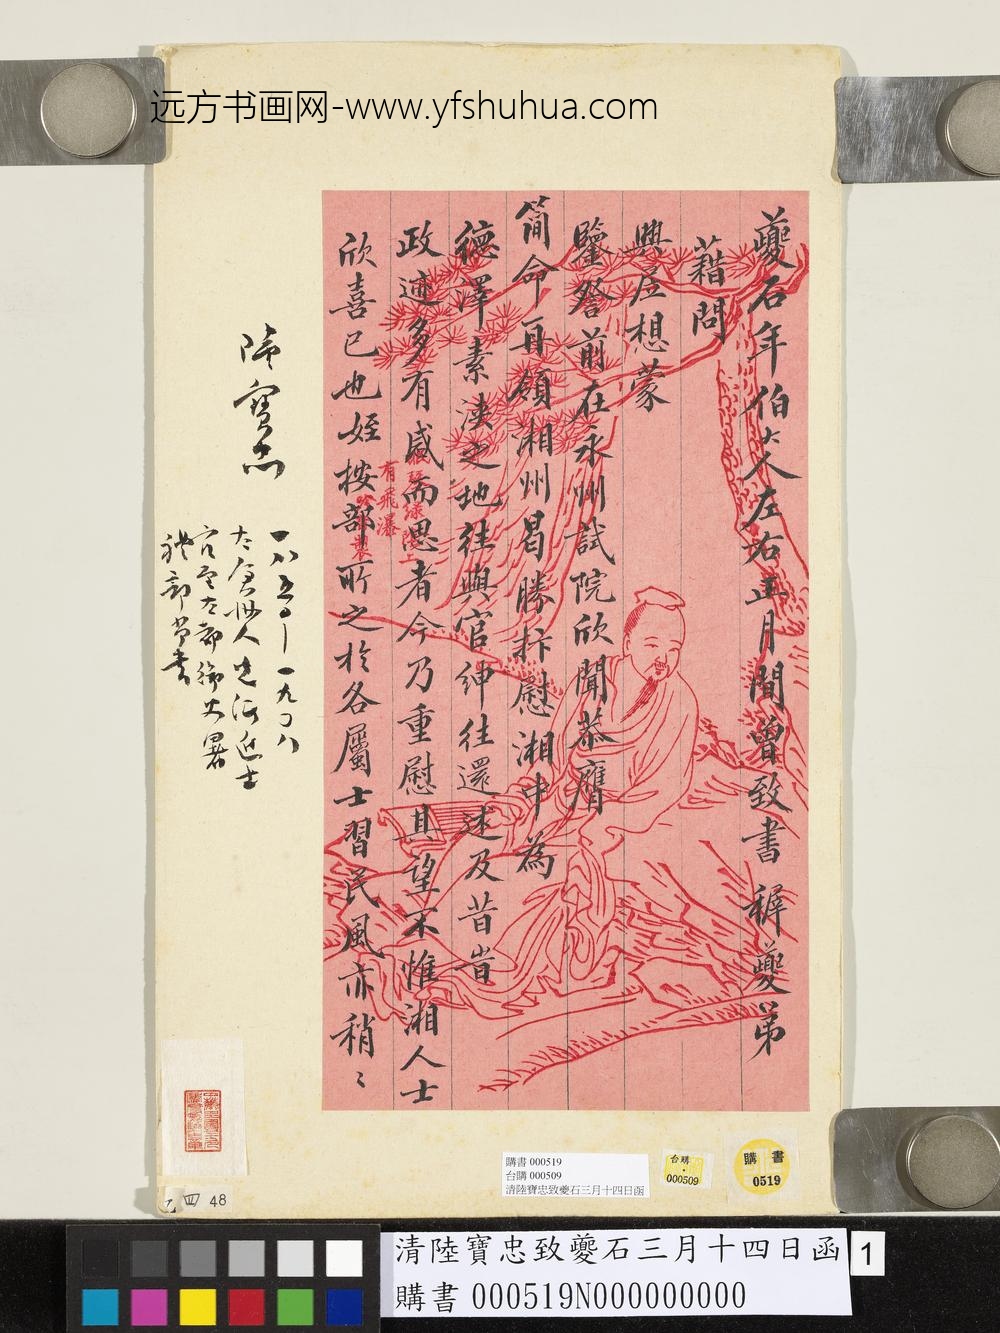 远方书画网-www.yfshuhua.com
夔石年伯大人左右正月間曾致書穉夔弟
藉問
興居想蒙
鑒詧前在永州試院欣聞恭膺
簡命再領湘州曷勝抃慰湘中為
德澤素浹之地往與官紳往還述及昔旹
政迹多有感而思者今乃重慰其望不惟湘人士
欣喜已也姪按部所之於各屬士習民風亦稍〻
有飛瀑
陸寶忠
一八五〇—一九〇八
太倉州人光緒進士
官至左都御史署
禮部尚書
購書 000519
台購 000509
清陸寶忠致夔石三月十四日函
台購
000509
購書
0519
乙 四 48
清陸寶忠致夔石三月十四日函
購書 000519N000000000
1